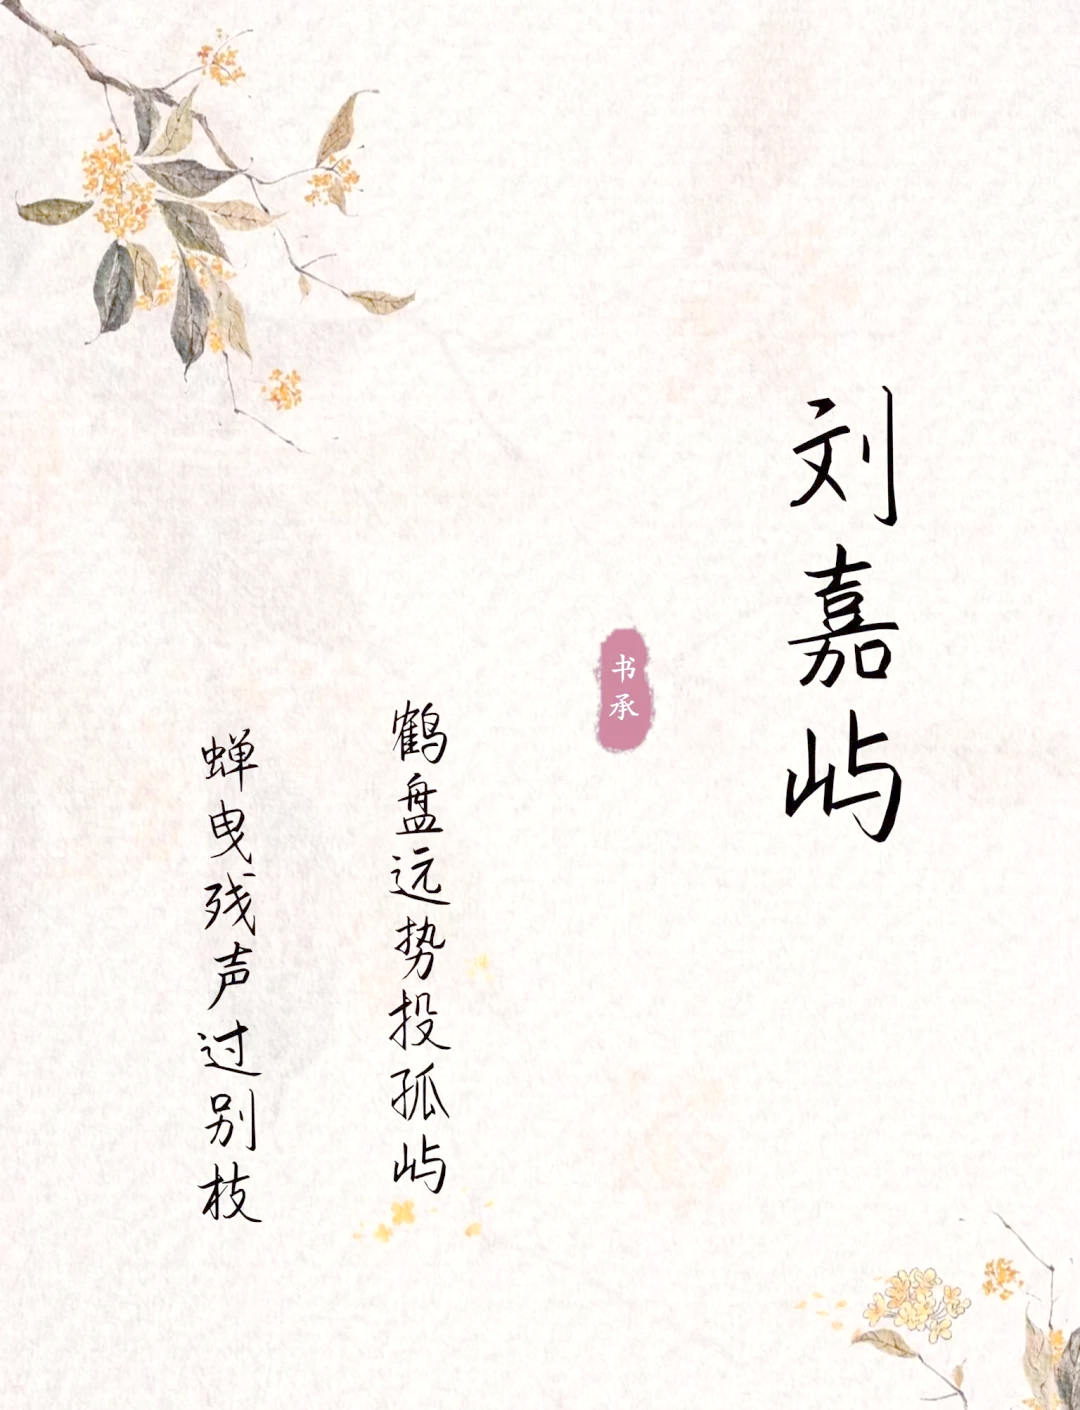 刘嘉屿
书承
鹤盘远势投孤屿
蝉曳残声过别枝